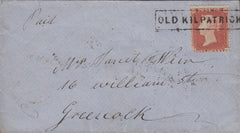 Paid
OLD KILPATRICK
Mr Janet Weir
16 William St
Greenock